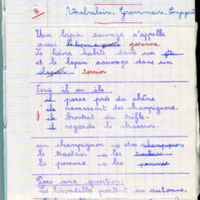 B. Vocabulaire, Grammaire, Conjugaison
Un lapin sauvage s'appelle
aussi garenne
Le lièvre habite dans un
et le lapin sauvage dans un
terrier
Ecris il ou ils
il passe près du chêne.
ils ramassent des champignons.
broutent du trèfle.
il regarde le chasseur.
un champignon → des champignons
le tracteur → les tracteurs
la pomme → les pommes
Pose une question:
Les hirondelles partent en automne.